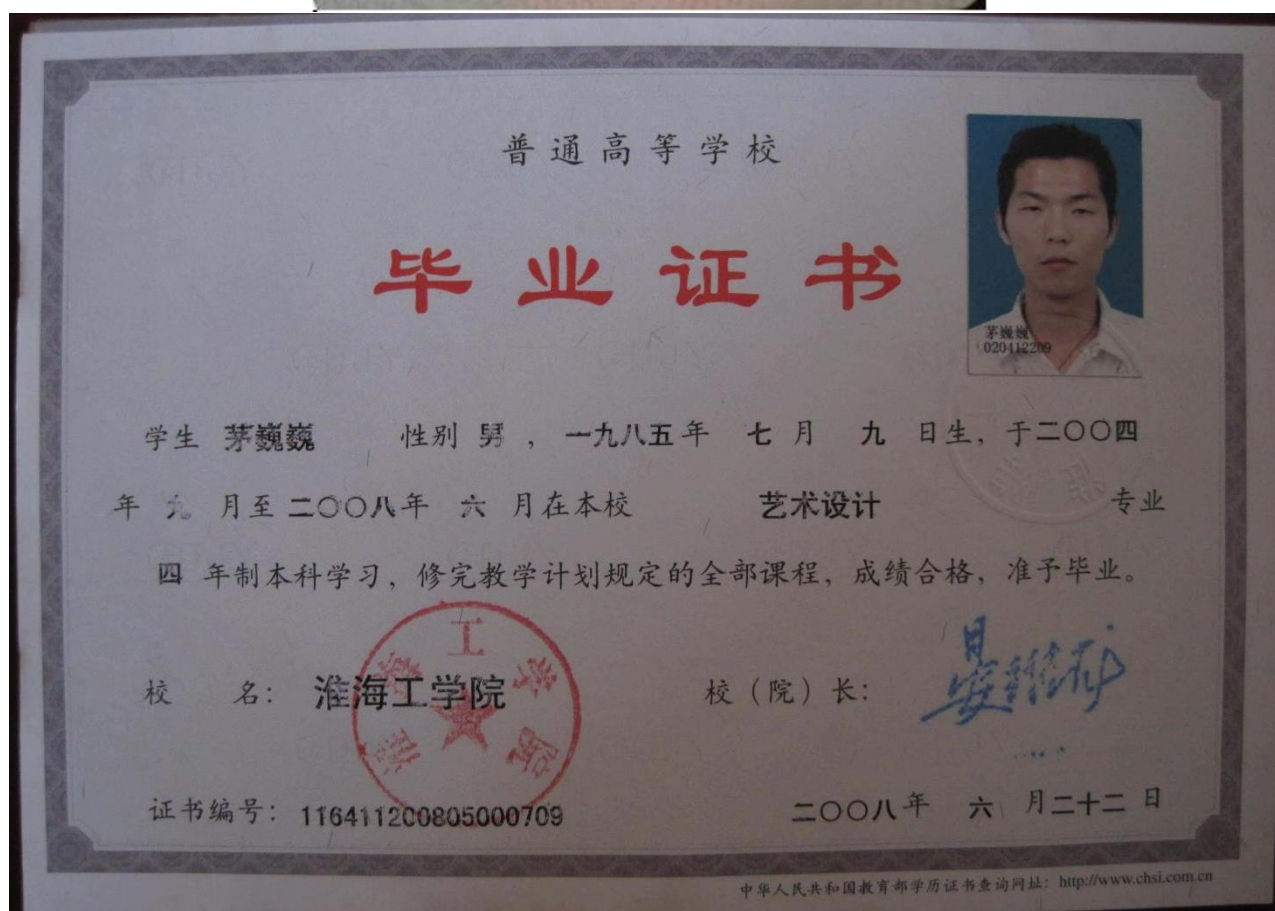 普通高等学校
毕业证书
茅巍巍
020412209
学生 茅巍巍 性别 男 ，一九八五年 七 月 九 日生，于二〇〇四
年 九 月至二〇〇八年 六 月在本校 艺术设计 专业
四 年制本科学习，修完教学计划规定的全部课程，成绩合格，准予毕业。
校 名：淮海工学院 校（院）长：
淮海工学院
证书编号：116411200805000709 二〇〇八年 六 月二十二日
中华人民共和国教育部学历证书查询网址：http://www.chsi.com.cn